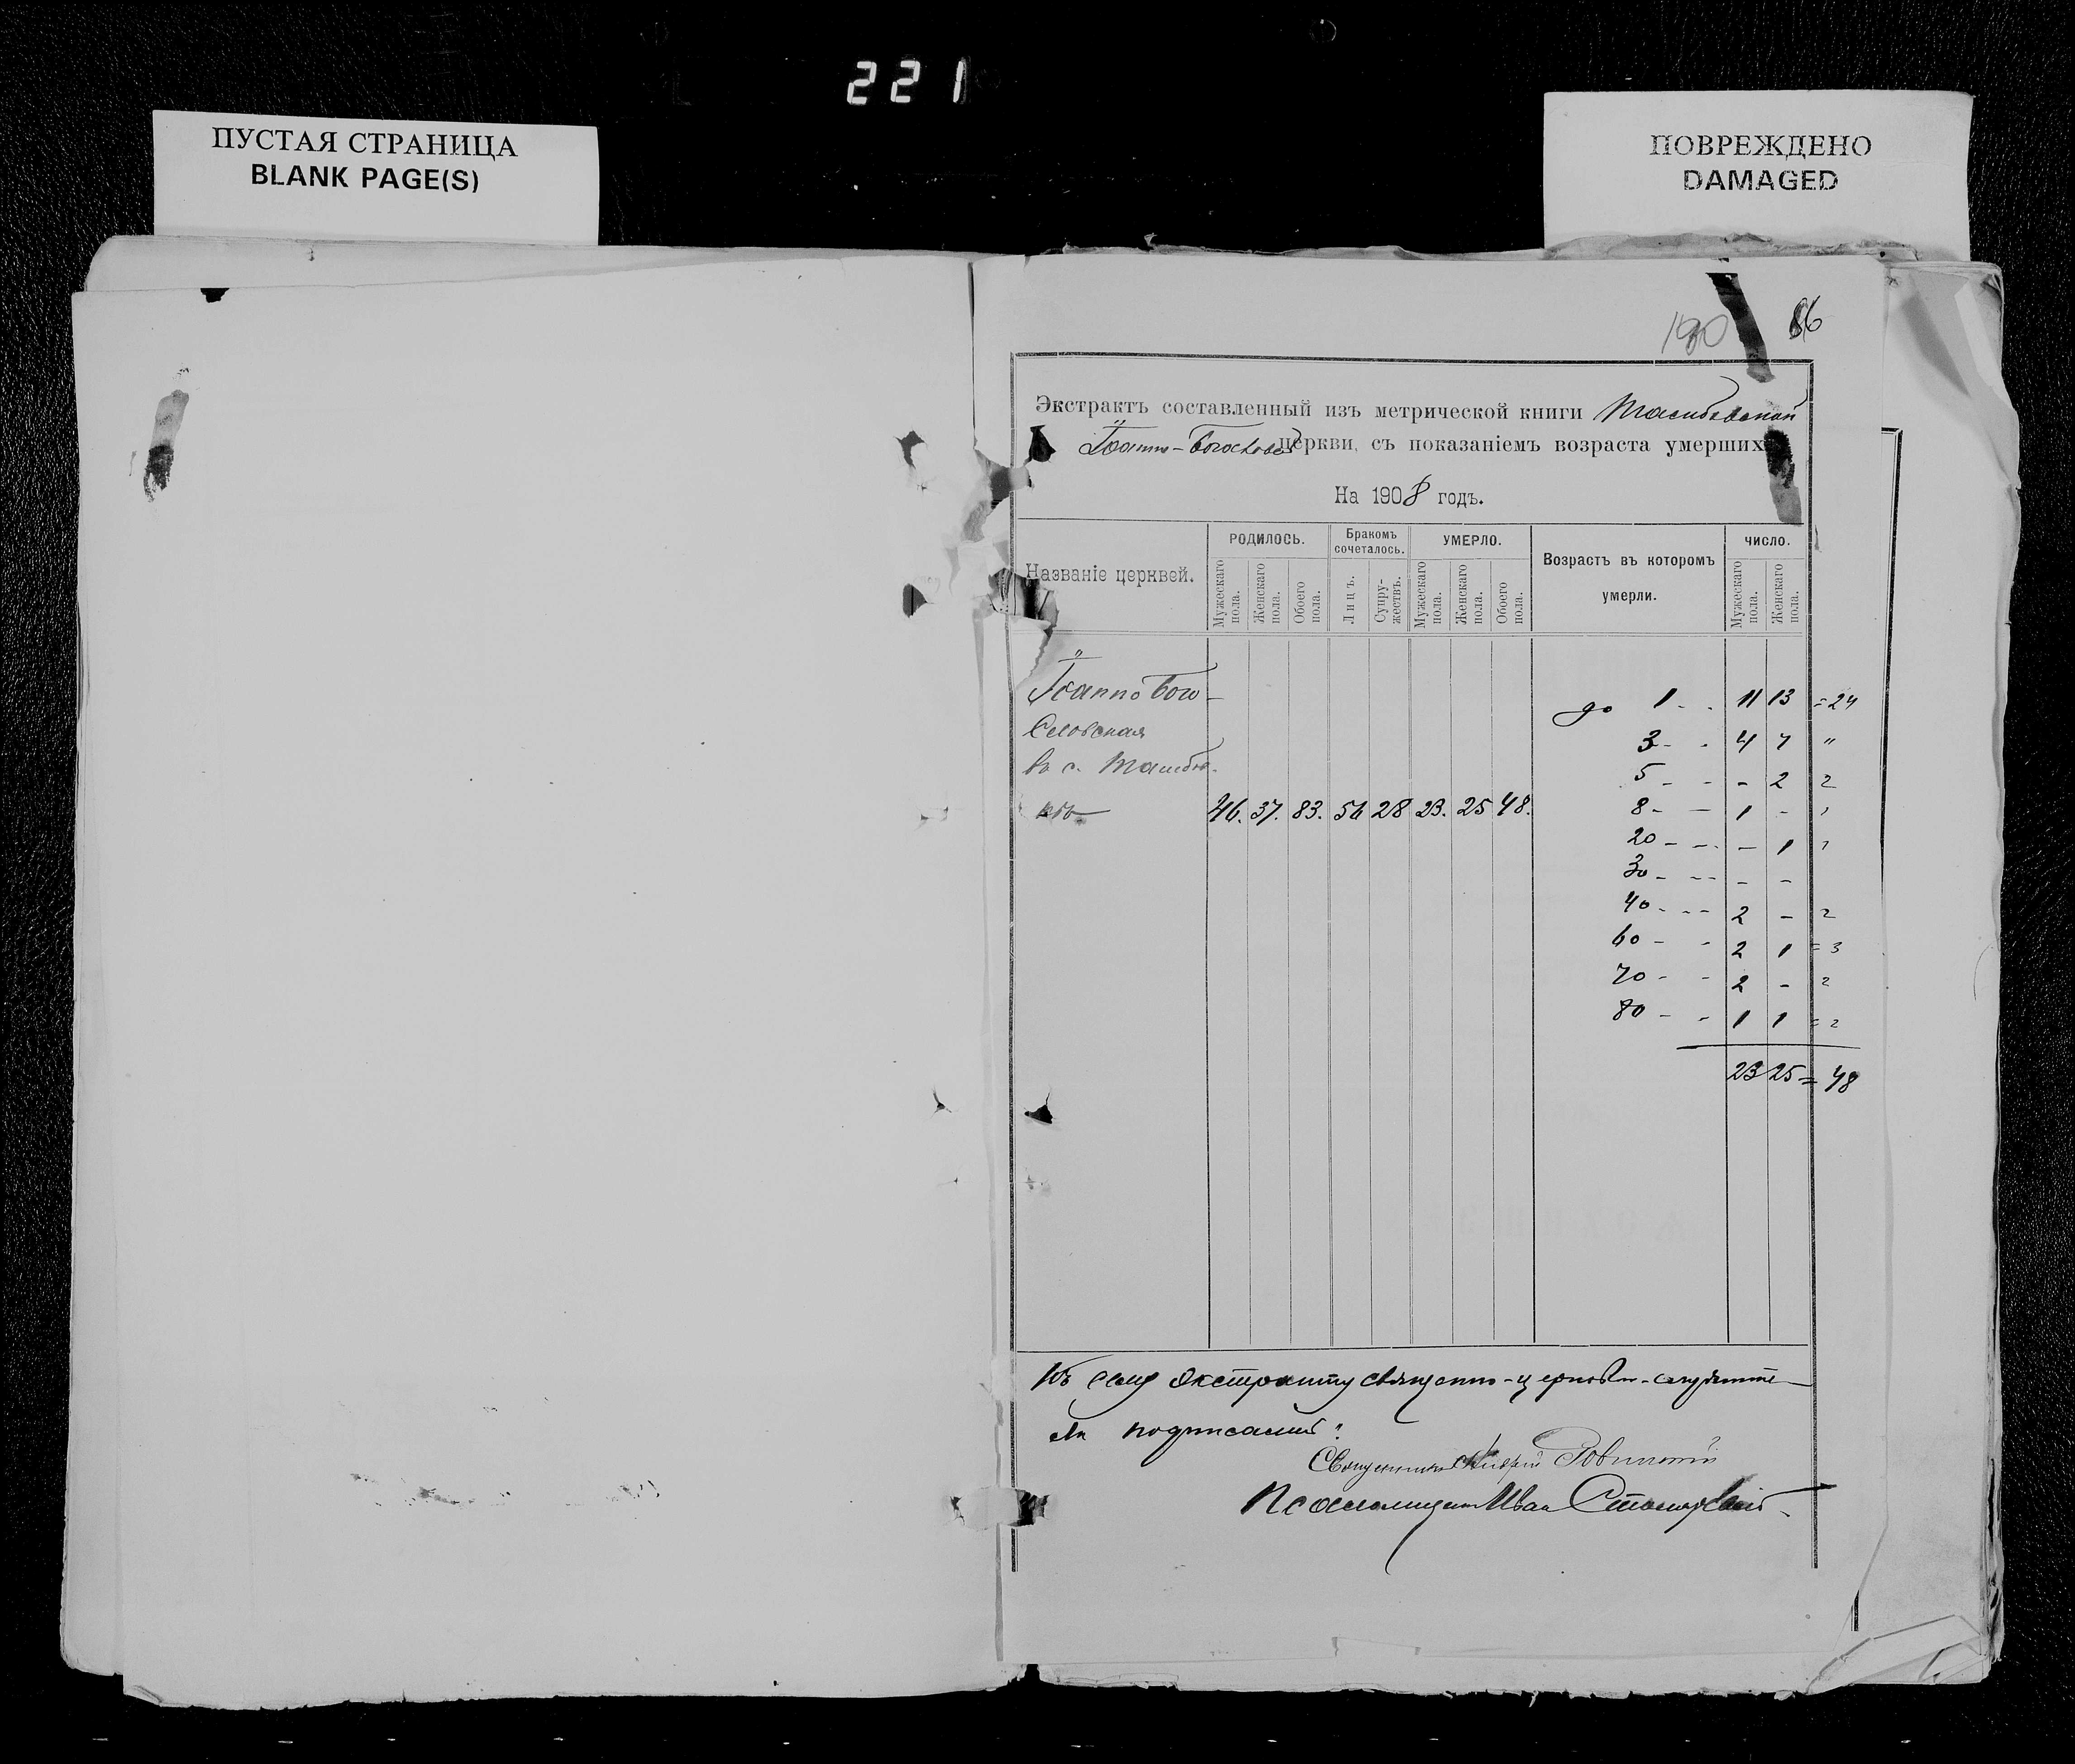 221
ПУСТАЯ СТРАНИЦА
BLANK PAGE(S)
ПОВРЕЖДЕНО
DAMAGED
190 86
Экстрактъ составленный изъ метрической книги
Іоанно-Богослов церкви, съ показаніемъ возраста умерших
На 1908 годъ.
Названіе церквей.
РОДИЛОСЬ.
Мужескаго пола.
Женскаго пола.
Обоего пола.
Бракомъ сочеталось.
Лицъ.
Супружествъ.
УМЕРЛО.
Мужескаго пола.
Женскаго пола.
Обоего пола.
Возрастъ въ которомъ
умерли.
ЧИСЛО.
Мужескаго пола.
Женскаго пола.
Іоанно Бого-
Словская
въ с.
46. 37. 83. 56 28 23. 25 48.
до 1 - - 11 13 = 24
3 - - 4 7 "
5 - - - 2 2
8 - - 1 - 1
20 - - - - 1 1
30 - - - - -
40 - - - 2 - 2
60 - - 2 1 = 3
70 - - 2 - 2
80 - - 1 1 = 2
23 25 = 48
Къ сему экстракту священно-церковно-служите-
ли подписались:
Священникъ Андрей
Псаломщикъ Иван